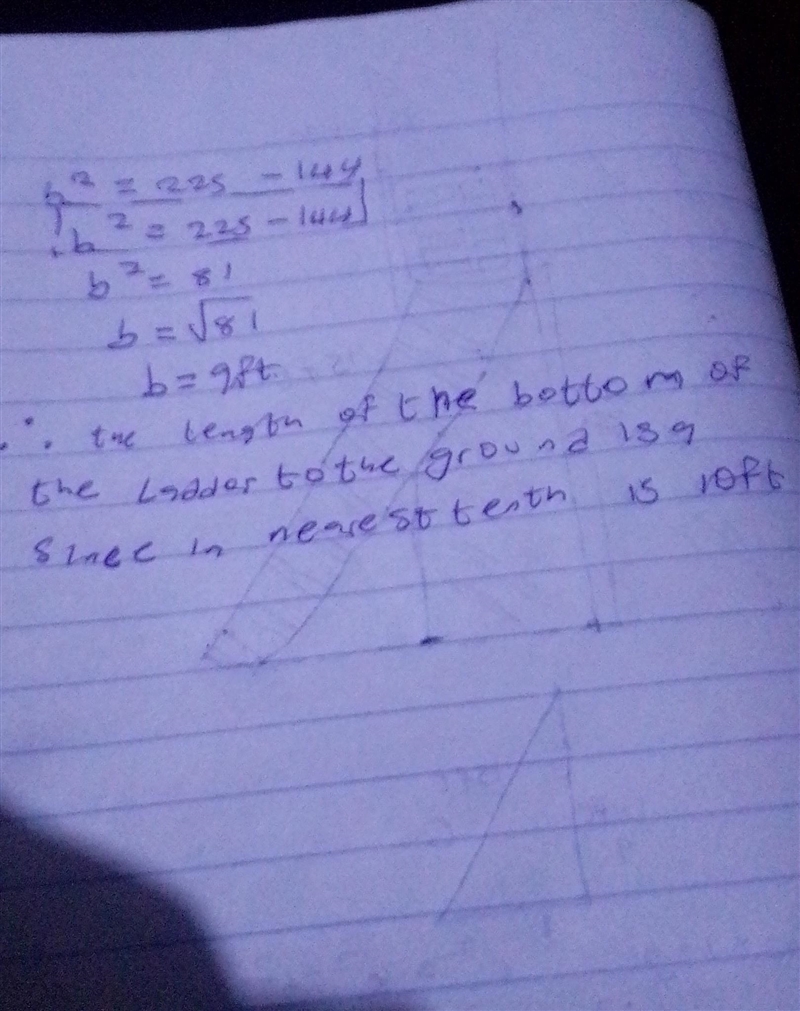 b² = 225 - 144
b² = 225 - 144
b² = 81
b = √81
b = 9ft.
∴ the length of the bottom of
the Ladder to the ground is 9
since in nearest tenth is 10ft